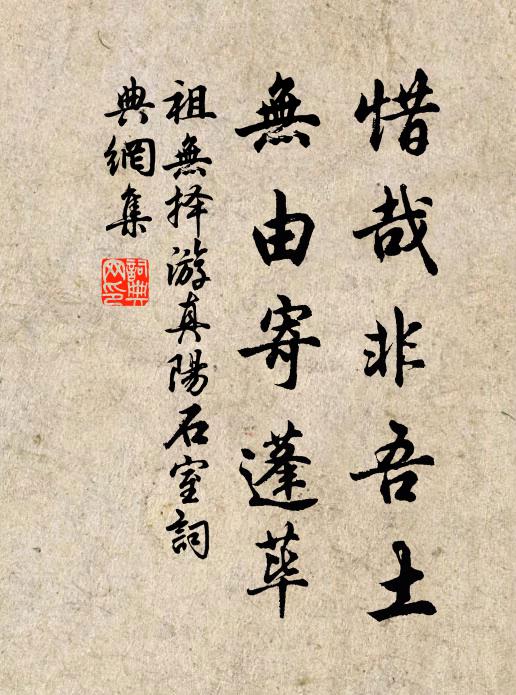 惜哉非吾土
無由寄蓬蓽
祖無择游真陽石室詞
典網集
詞典网印